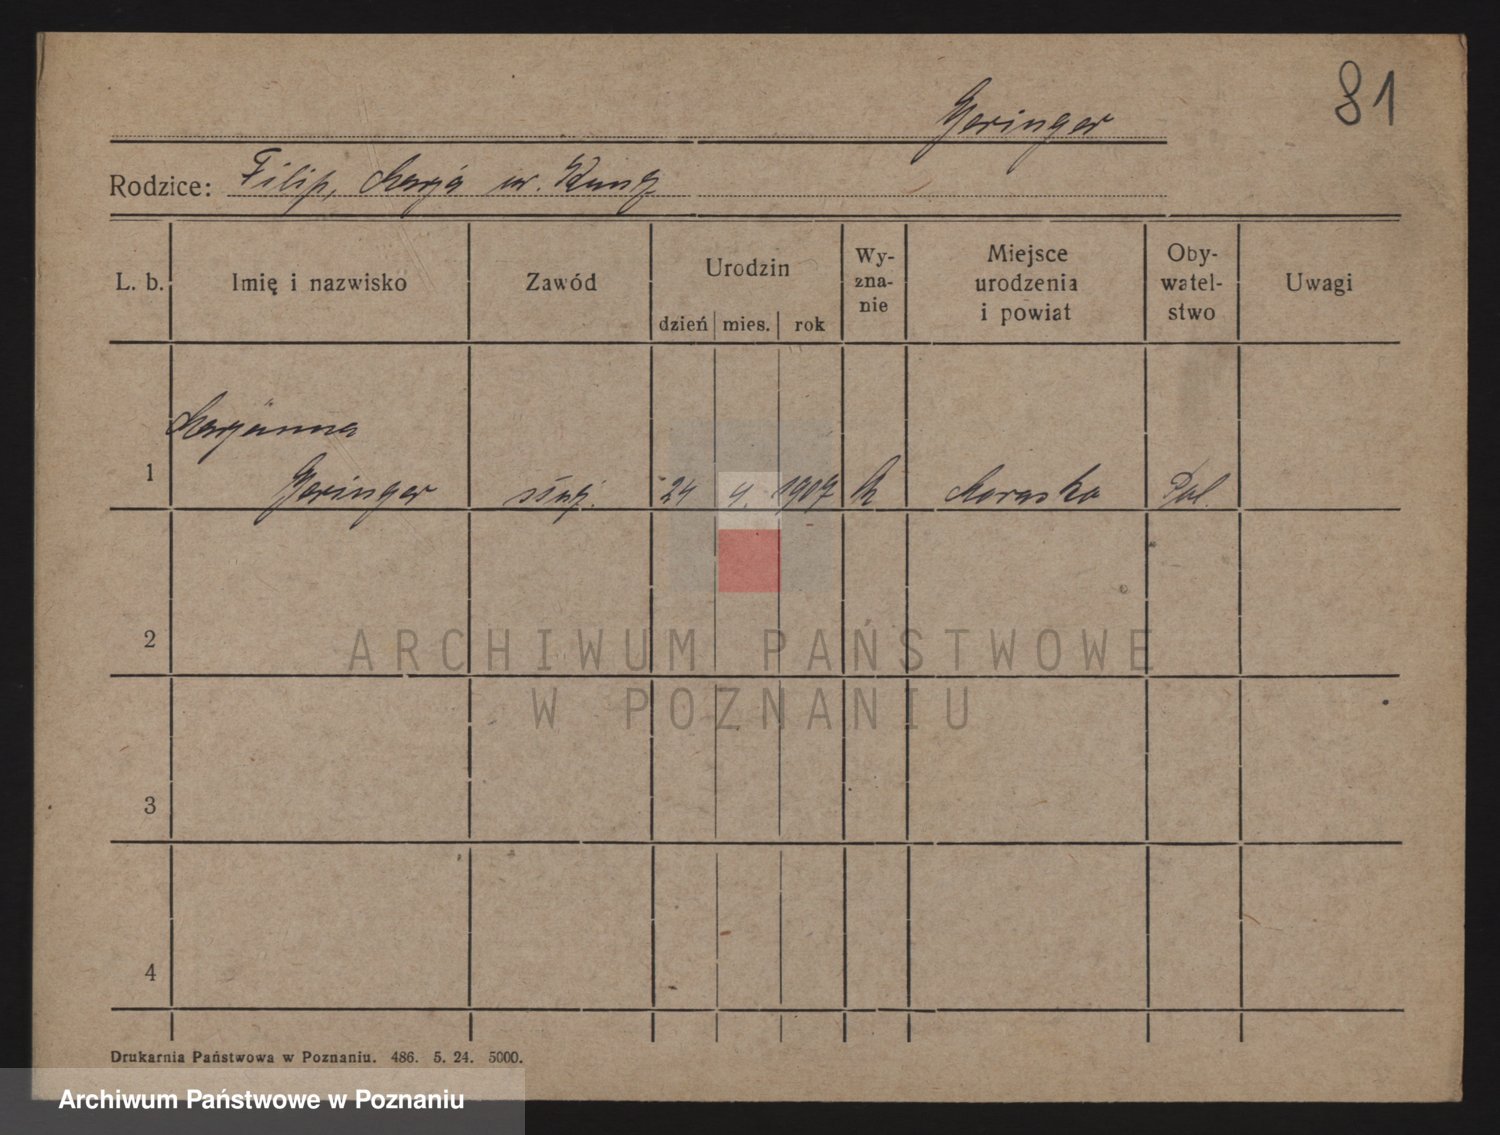 81
Geringer
Rodzice: Filip, Marja ur. Kunz
L. b.
Imię i nazwisko
Zawód
Urodzin
dzień mies. rok
Wy-
zna-
nie
Miejsce
urodzenia
i powiat
Oby-
watel-
stwo
Uwagi
Marjanna
1 Geringer służ. 24 9. 1907 k Morasko Pol.
2
3
4
ARCHIWUM PAŃSTWOWE
W POZNANIU
Drukarnia Państwowa w Poznaniu. 486. 5. 24. 5000.
Archiwum Państwowe w Poznaniu